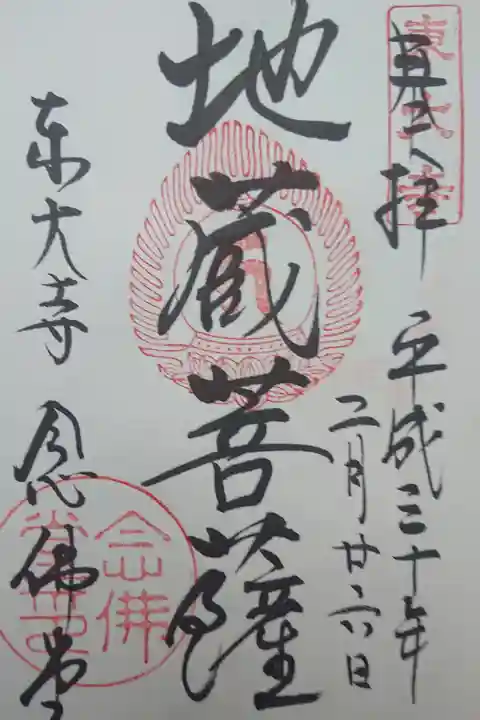 奉拝
平成三十年
二月廿六日
地蔵菩薩
東大寺 念佛堂
東大寺
念佛